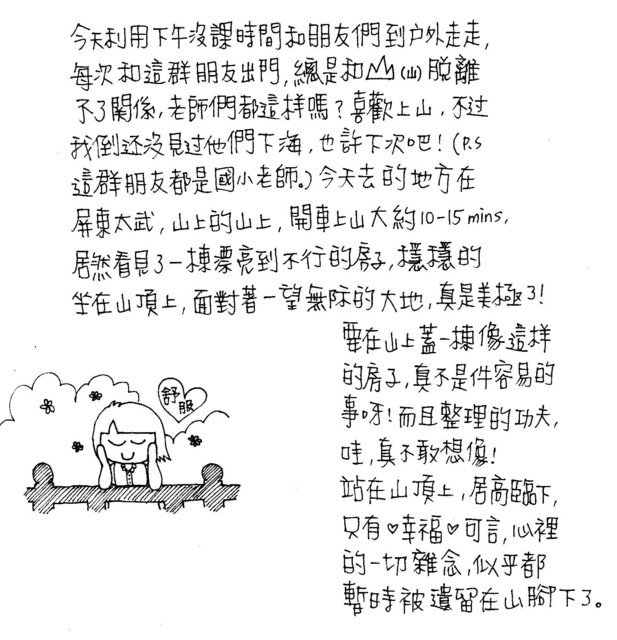 今天利用下午沒課時間和朋友們到户外走走,
每次和這群朋友出門,總是和(山)脫離
不了關係,老師們都這样嗎?喜歡上山,不过
我倒还沒見过他們下海,也許下次吧!(P.S
這群朋友都是國小老師。)今天去的地方在
屏東太武,山上的山上,開車上山大約10-15 mins,
居然看見了一棟漂亮到不行的房子,穩穩的
坐在山頂上,面對著一望無際的大地,真是美極了!
要在山上蓋一棟像這样
的房子,真不是件容易的
事呀!而且整理的功夫,
哇,真不敢想像!
站在山頂上,居高臨下,
只有♥幸福♥可言,心裡
的一切雜念,似乎都
暫時被遺留在山腳下了。
舒服